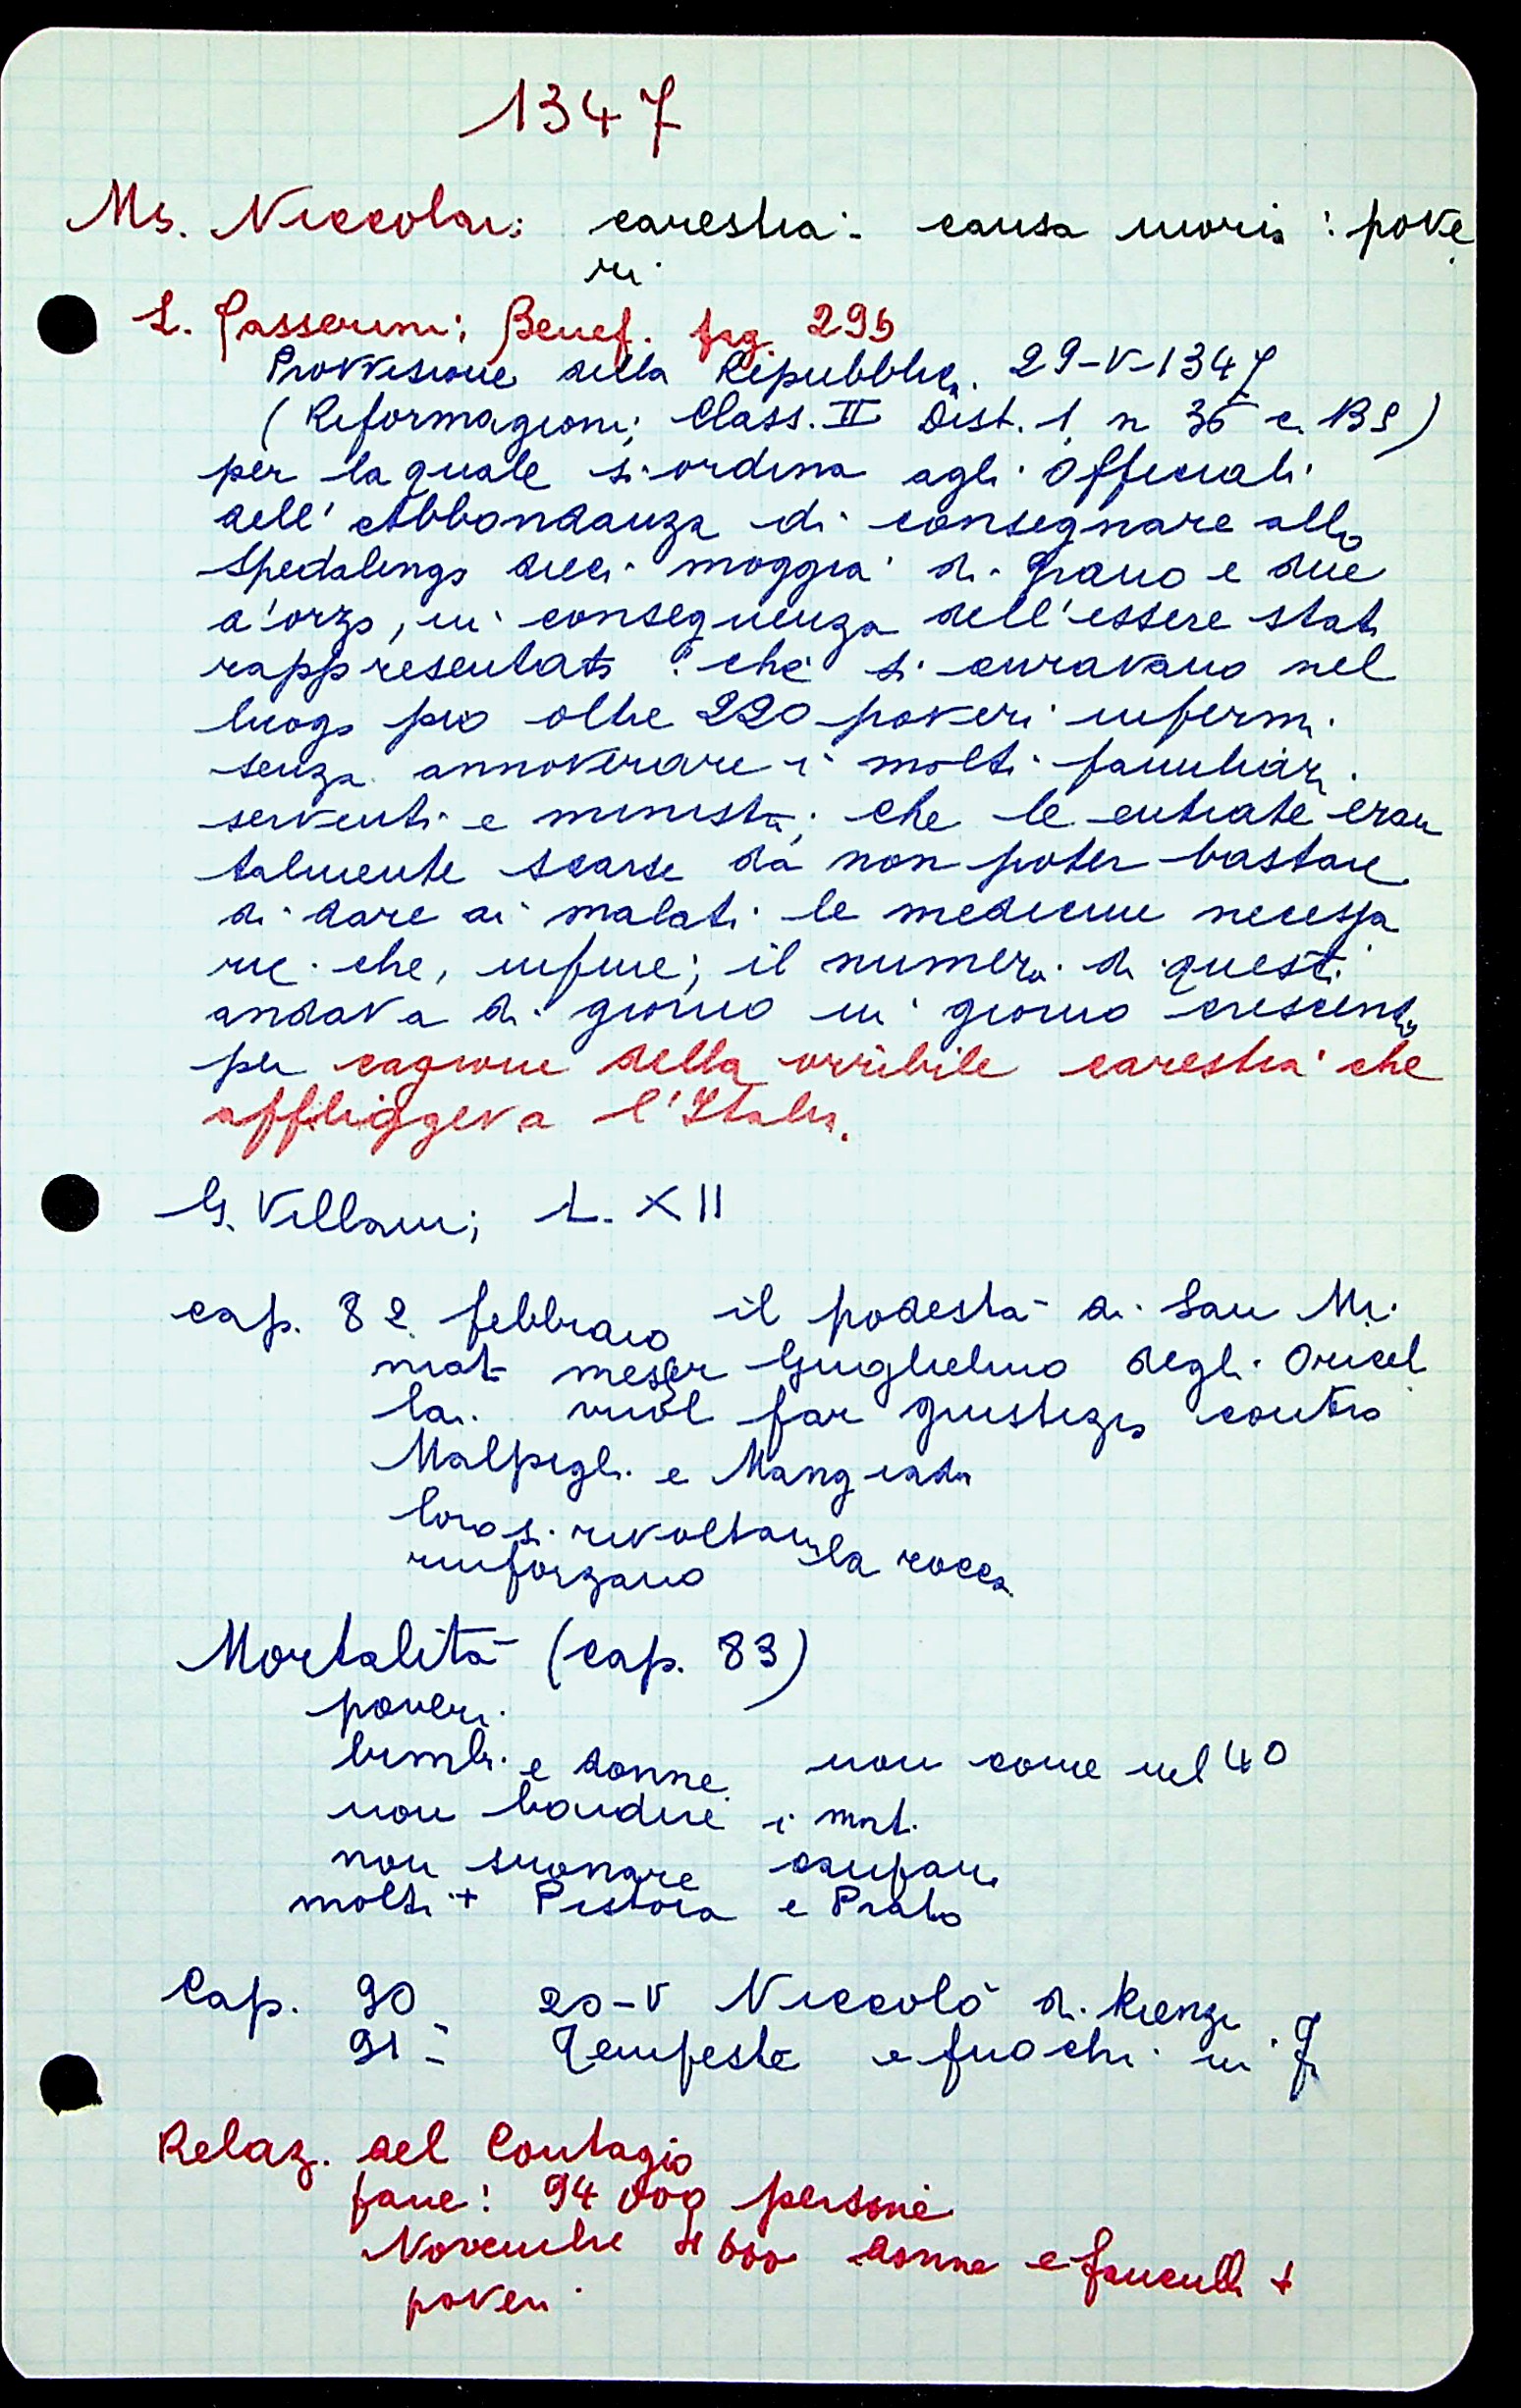 1347
Ms. Niccolai: carestia: causa moria: pove
ri
L. Passerini; Benef. pag. 295
Provvisione della Repubblica. 29-V-1347
(Riformagioni; Class. II Dist. 1 n 35 c. 139)
per la quale si ordina agli Officiali
dell'Abbondanza di consegnare allo
Spedalingo dieci moggia di grano e due
d'orzo, in conseguenza dell'essere stato
rappresentato: che si curavano nel
luogo pio oltre 220 poveri infermi
senza annoverare i molti familiari
serventi e ministri; che le entrate eran
talmente scarse da non poter bastare
di dare ai malati le medicine necessa
rie che, infine; il numero di questi
andava di giorno in giorno crescendo
per cagione della orribile carestia che
affliggeva l'Italia.
G. Villani; L. XII
cap. 82 febbraio il podestà di San Mi
niato messer Guglielmo degli Oricel
lai vuol far giustizia contro
Malpigli e Mangiadori
loro si rivoltano
rinforzano la rocca
Mortalità (cap. 83)
poveri
bimbi e donne non come nel 40
non bandire i morti
non suonare campane
molti + Pistoia e Prato
Cap. 90 20-V Niccolò di Rienzi
91 - Tempeste e fuochi in F
Relaz. del Contagio
fame: 94 000 persone
Novembre 4 600 donne e fanciulli +
poveri